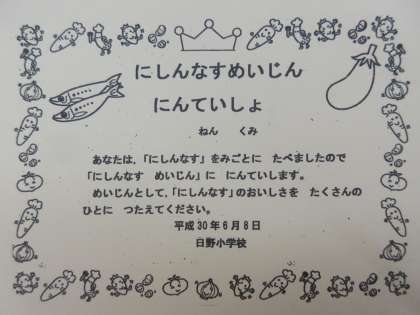 にしんなすめいじん
にんていしょ
ねん　くみ
あなたは、「にしんなす」をみごとに　たべましたので
「にしんなす　めいじん」に　にんていします。
めいじんとして、「にしんなす」のおいしさを　たくさんの
ひとに　つたえてください。
平成30年6月8日
日野小学校